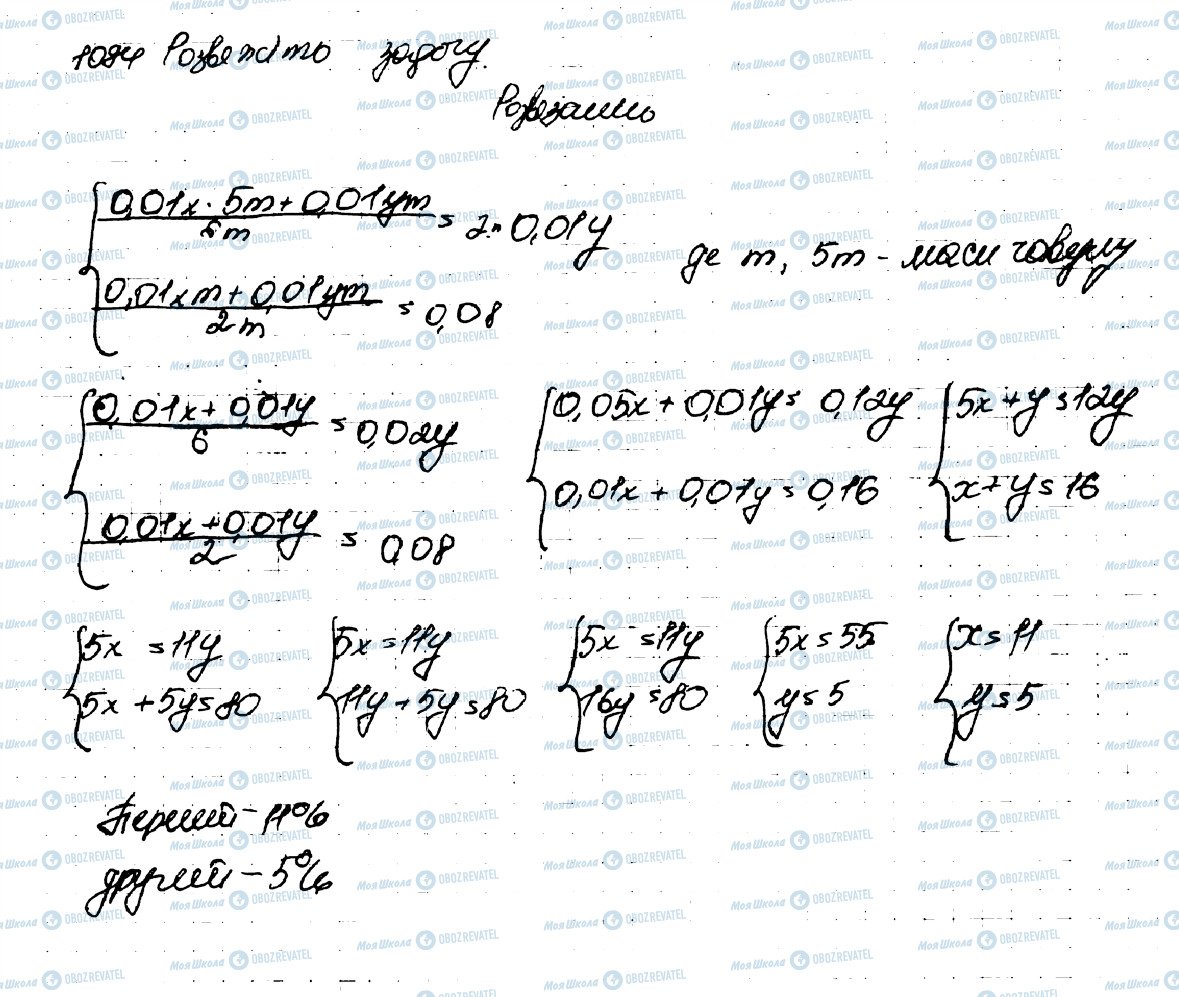 1084 Розвяжіть задачу.
Розвязання
{ (0,01x · 5m + 0,01ym) / 6m = 2 · 0,01y
{ (0,01xm + 0,01ym) / 2m = 0,08
де m, 5m - маси
{ (0,01x + 0,01y) / 6 = 0,02y
{ (0,01x + 0,01y) / 2 = 0,08
{ 0,05x + 0,01y = 0,12y
{ 0,01x + 0,01y = 0,16
{ 5x + y = 12y
{ x + y = 16
{ 5x = 11y
{ 5x + 5y = 80
{ 5x = 11y
{ 11y + 5y = 80
{ 5x = 11y
{ 16y = 80
{ 5x = 55
{ y = 5
{ x = 11
{ y = 5
Перший - 11%
другий - 5%
МояШкола OBOZREVATEL